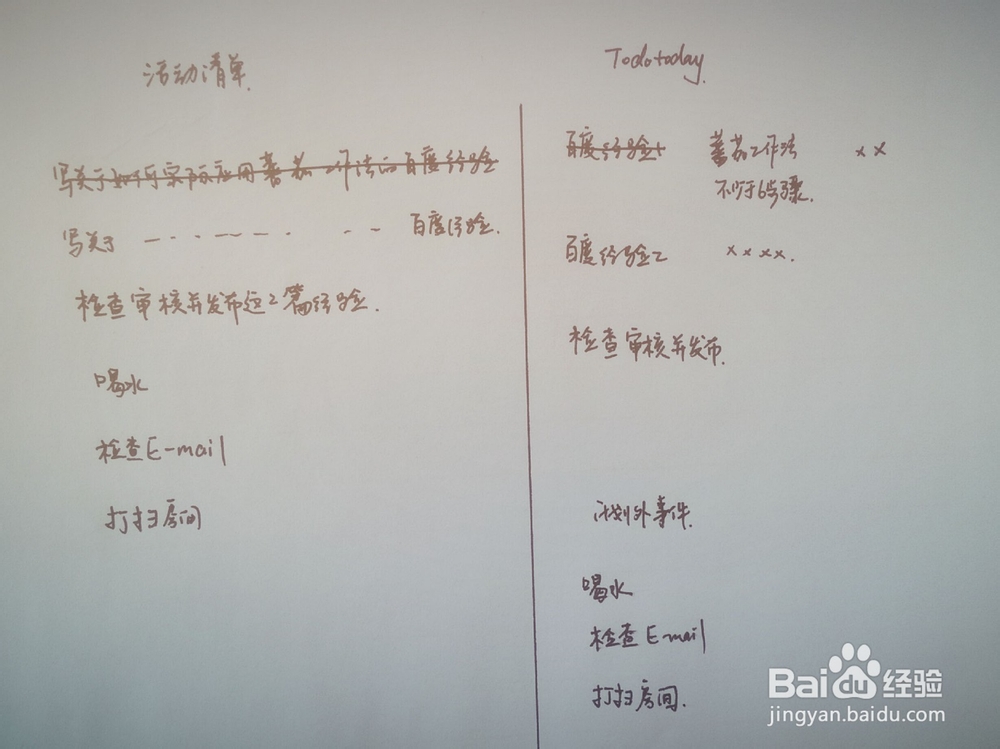 活动清单.
写关于如何实际应用蕃茄工作法的百度经验
写关于 — · · — — · · — 百度经验.
检查审核并发布这2篇经验.
喝水
检查E-mail
打扫房间
Todotoday.
百度经验1 蕃茄工作法 x x
不少于6步骤.
百度经验2 x x x x.
检查审核并发布.
计划外事件.
喝水
检查E-mail
打扫房间.
Baidu经验
jingyan.baidu.com